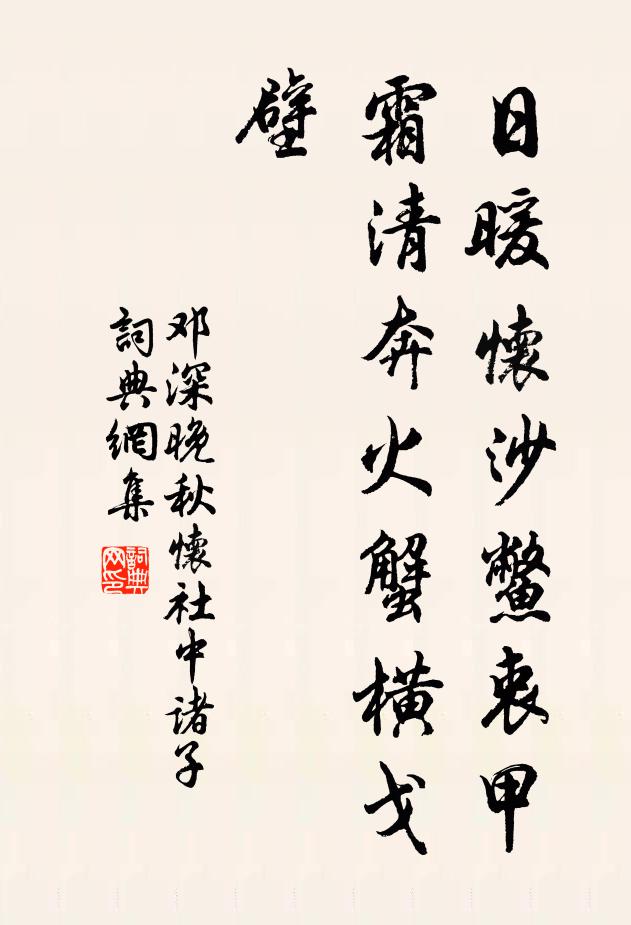 日暖懷沙鱉衷甲
霜清奔火蟹橫戈
壁
邓深晚秋懷社中諸子
詞典網集
詞典
网印